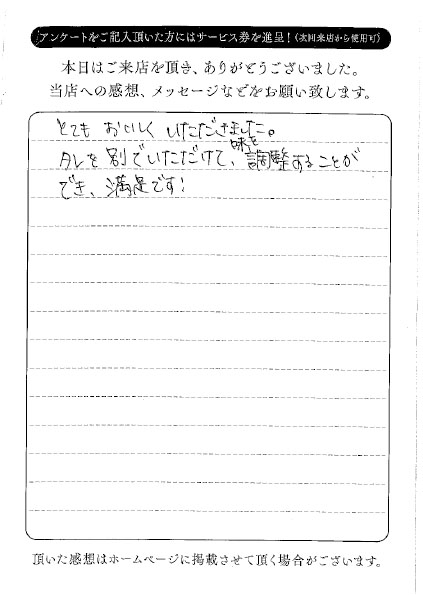 アンケートをご記入頂いた方にはサービス券を進呈！(次回来店から使用可)
本日はご来店を頂き、ありがとうございました。
当店への感想、メッセージなどをお願い致します。
とても おいしく いただきました。
タレを 別でいただけて、味を調整することが
でき、満足です!
頂いた感想はホームページに掲載させて頂く場合がございます。